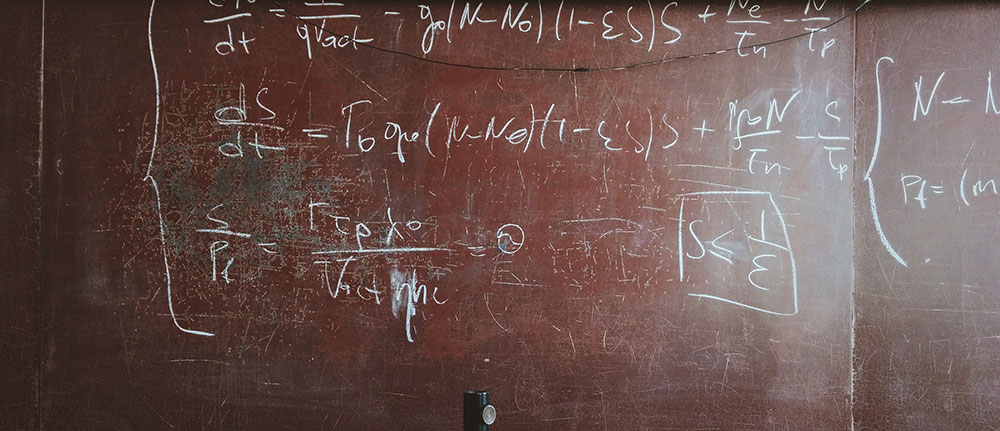 dt = I/qVact - g₀(N-N₀)(1-εS)S + Ne/τn - N/τp
dS/dt = Γ₀g₀(N-N₀)(1-εS)S + N/τn - S/τp
S/Pf = Γτpλ₀/Vact ηhc =
S ≤ 1/ε
N -
Pf = (m